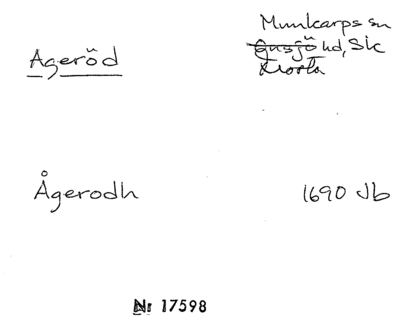 Ageröd
Munkarps sn
Gusjö hd, Sk
Frosta
Ågerodh
1690 Jb
Nr 17598